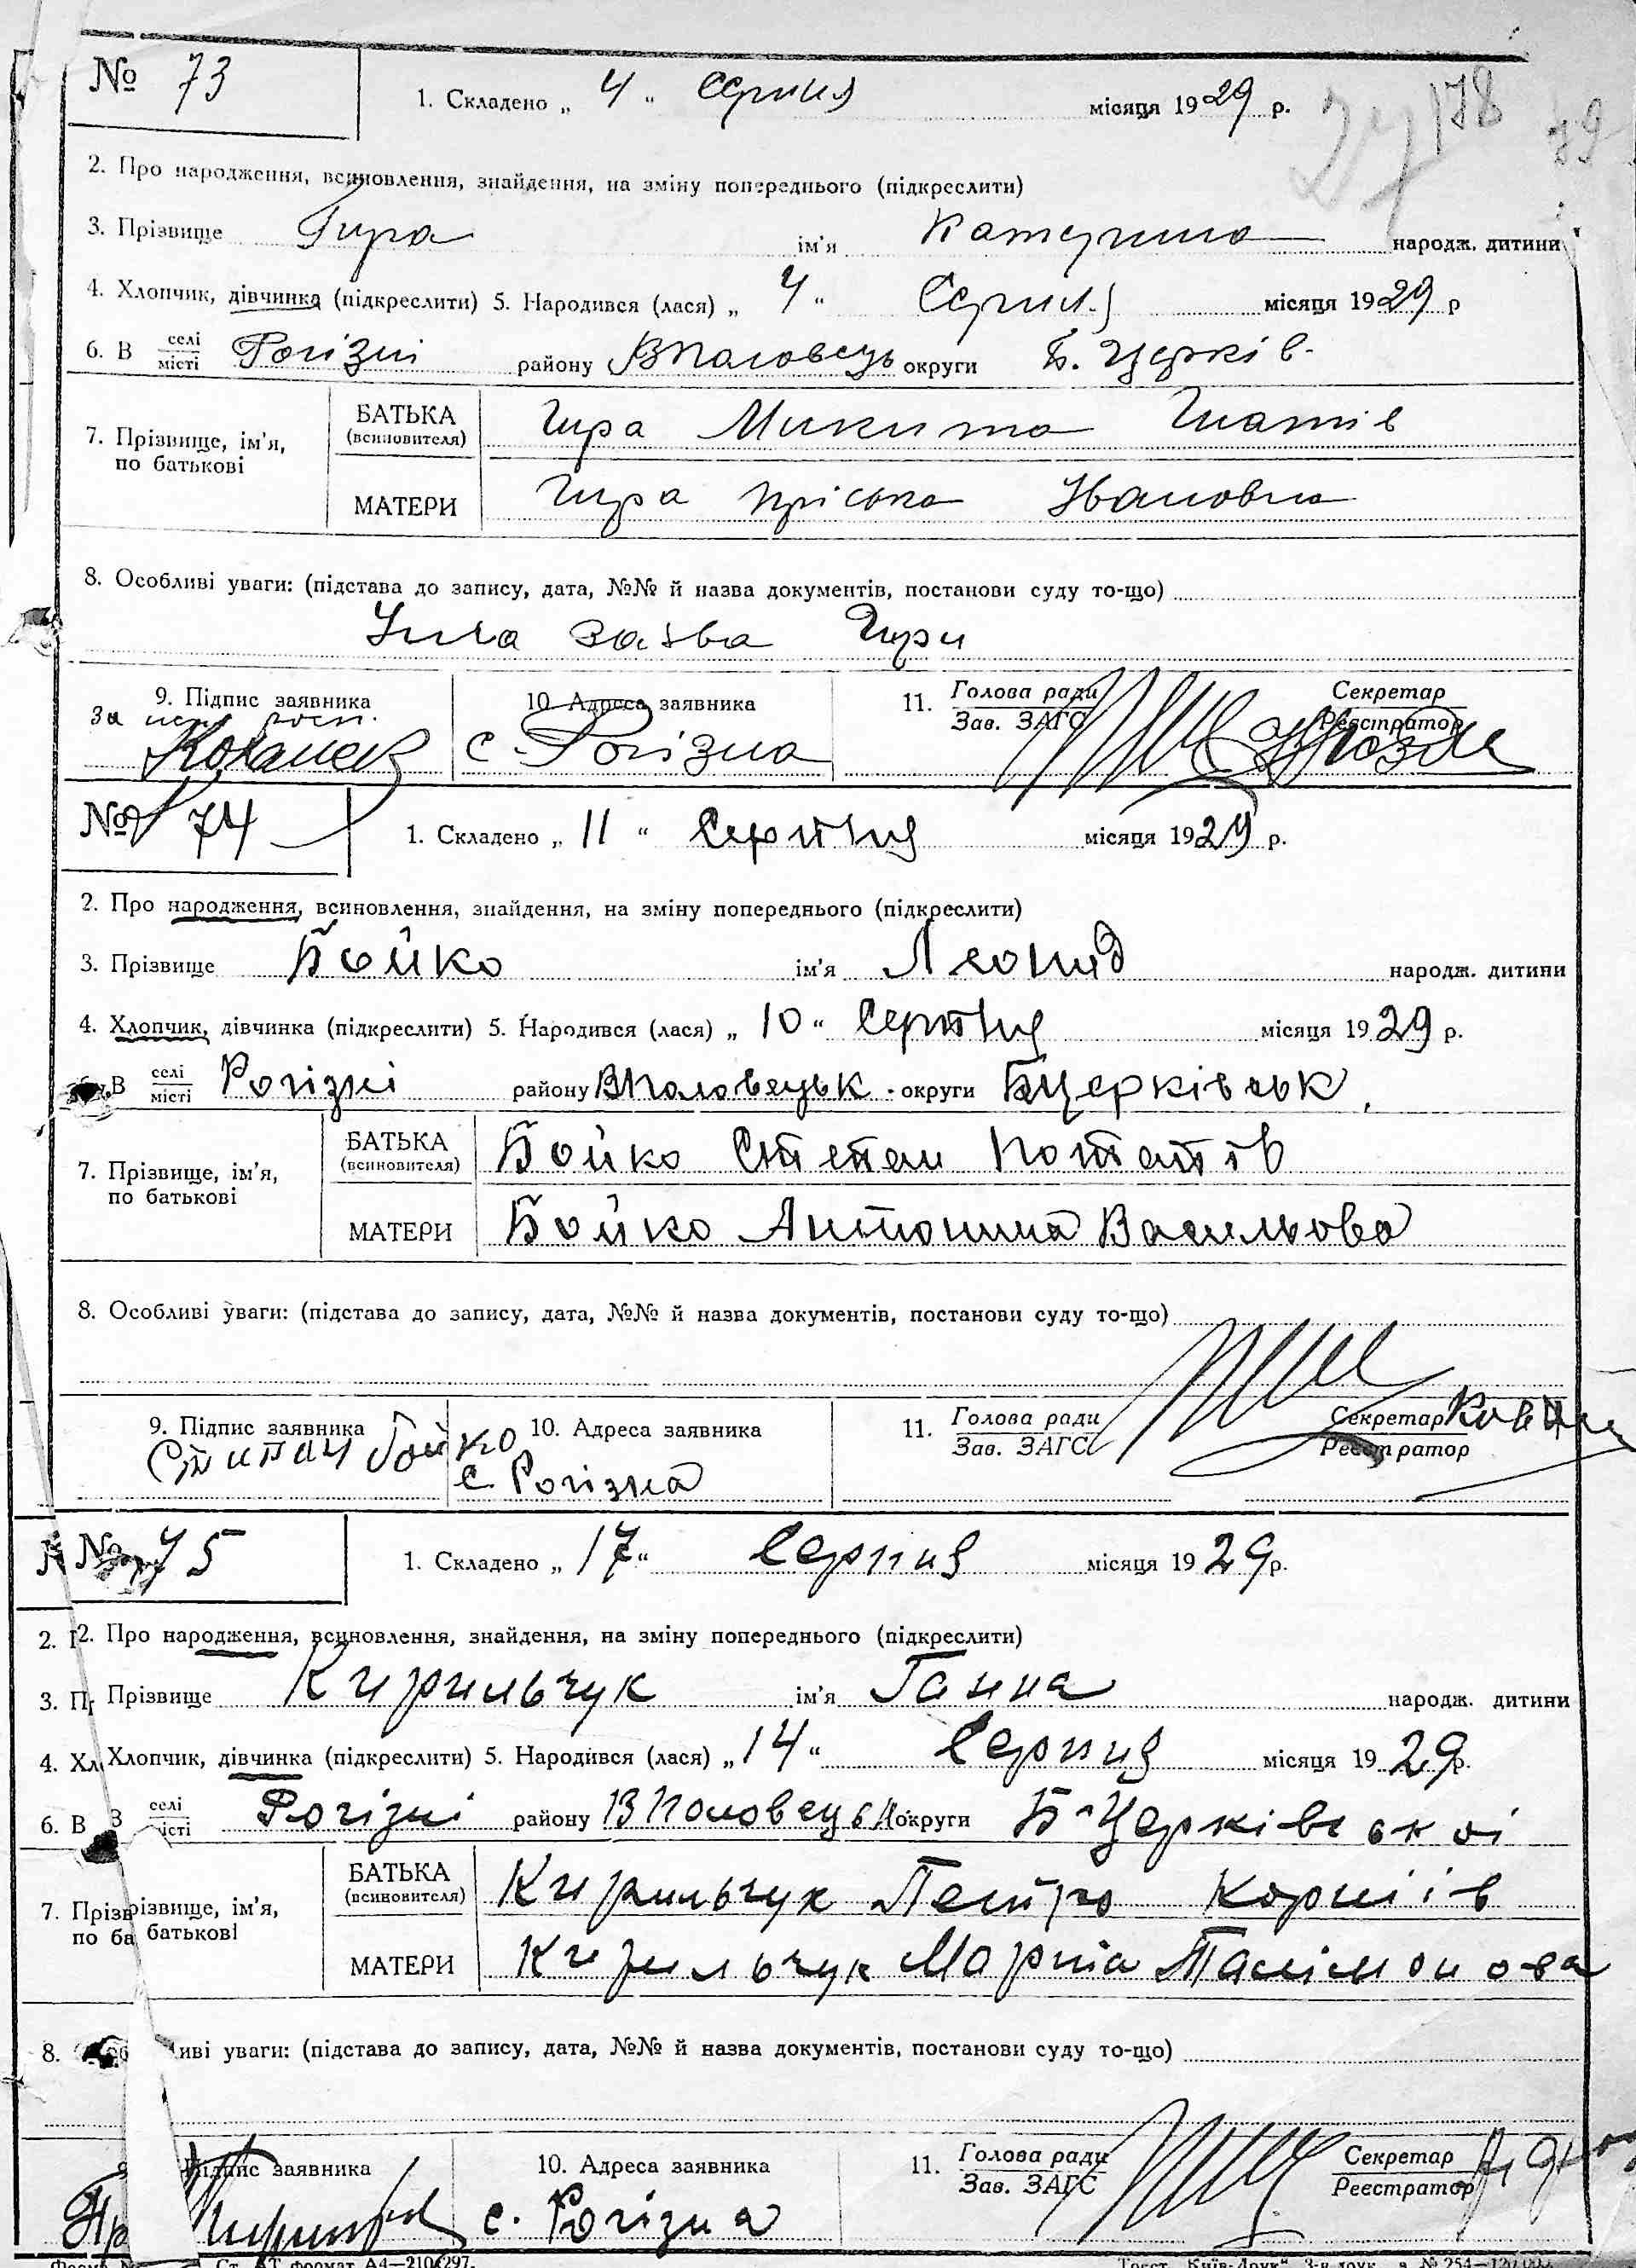 № 73
1. Складено „ 4 “ Серпня місяця 1929 р.
2. Про народження, всиновлення, знайдення, на зміну попереднього (підкреслити)
3. Прізвище Гира ім'я Катерина народж. дитини
4. Хлопчик, дівчинка (підкреслити) 5. Народився (лася) „ 4 “ Серпня місяця 1929 р
6. В селі/місті Рогізні району ВПоловець округи Б. Церків.
7. Прізвище, ім'я, по батькові
БАТЬКА (всиновителя) Гира Микита Гнатів
МАТЕРИ Гира Пріська Івановна
8. Особливі уваги: (підстава до запису, дата, №№ й назва документів, постанови суду то-що)
заява Гири
9. Підпис заявника 10. Адреса заявника 11. Голова ради/Зав. ЗАГС Секретар/Реєстратор
За
с. Рогізна
№ 74
1. Складено „ 11 “ Серпня місяця 1929 р.
2. Про народження, всиновлення, знайдення, на зміну попереднього (підкреслити)
3. Прізвище Бойко ім'я Леонид народж. дитини
4. Хлопчик, дівчинка (підкреслити) 5. Народився (лася) „ 10 “ Серпня місяця 1929 р.
В селі/місті Рогізні району ВПоловецьк. округи БЦерківськ.
7. Прізвище, ім'я, по батькові
БАТЬКА (всиновителя) Бойко Степан Потапів
МАТЕРИ Бойко Антонина Васильова
8. Особливі уваги: (підстава до запису, дата, №№ й назва документів, постанови суду то-що)
9. Підпис заявника 10. Адреса заявника 11. Голова ради/Зав. ЗАГС Секретар/Реєстратор
Степан Бойко
с. Рогізна
№ 75
1. Складено „ 17 “ Серпня місяця 1929 р.
2. Про народження, всиновлення, знайдення, на зміну попереднього (підкреслити)
3. Прізвище Кирильчук ім'я Ганна народж. дитини
4. Хлопчик, дівчинка (підкреслити) 5. Народився (лася) „ 14 “ Серпня місяця 1929 р.
6. В Рогізні району ВПоловецьк округи Б-Церківської
7. Прізвище, ім'я, по батькові
БАТЬКА (всиновителя) Кирильчук Петро Корніів
МАТЕРИ Кирильчук Марія Палімонова
8. уваги: (підстава до запису, дата, №№ й назва документів, постанови суду то-що)
Підпис заявника 10. Адреса заявника 11. Голова ради/Зав. ЗАГС Секретар/Реєстратор
с. Рогізна
формат А4—210×297.